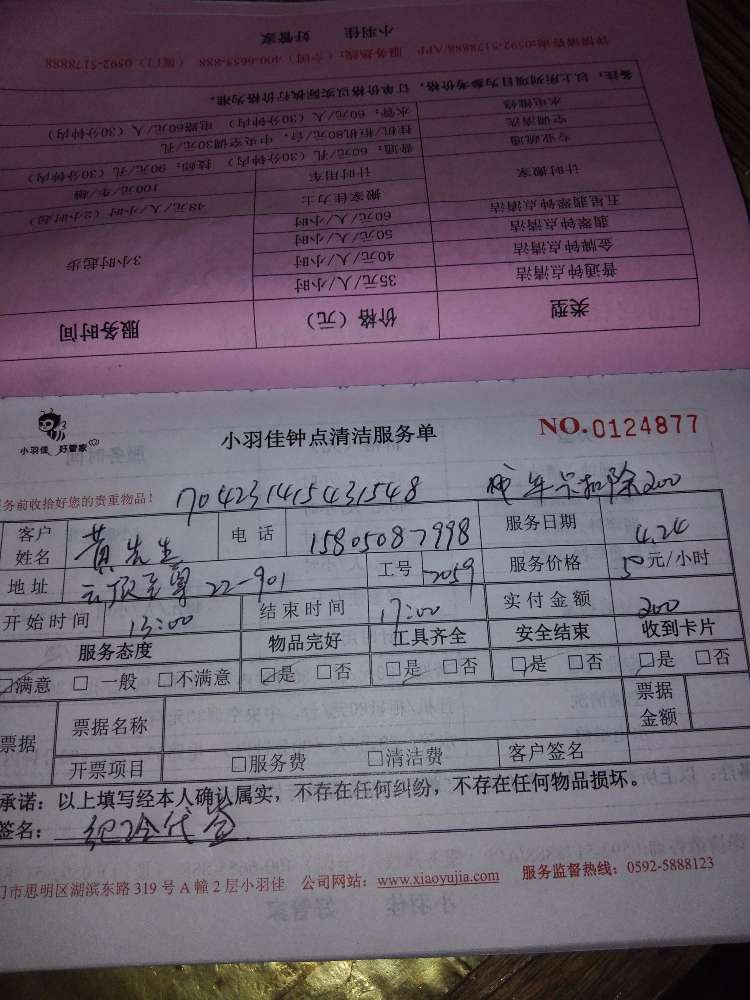 小羽佳 好管家
详情咨询:0592-5178888/APP 服务热线：(全国) 400-6655-888 (厦门) 0592-5178888
类型 价格（元） 服务时间
普通钟点清洁 35元/人/小时 3小时起步
金牌钟点清洁 40元/人/小时
翡翠钟点清洁 50元/人/小时
五星翡翠钟点清洁 60元/人/小时
计时搬家 搬家佳力士 48元/人/小时（2小时起）
计时用车 100元/车/趟
专业疏通 普通：60元/孔（30分钟内） 技师：90元/孔（30分钟内）
空调清洗 挂机/柜机80元/台，中央空调30元/孔
水电维修 水管：60元/人（30分钟内） 电路60元/人（30分钟内）
备注：以上所列项目为参考价格，订单价格以实际执行价格为准。
小羽佳 好管家
小羽佳钟点清洁服务单 NO.0124877
务前收拾好您的贵重物品！ 704231415431548 年卡扣除200
客户姓名 黄先生 电话 15805087998 服务日期 4.24
地址 22-901 工号 2059 服务价格 50元/小时
开始时间 13:00 结束时间 17:00 实付金额 200
服务态度 物品完好 工具齐全 安全结束 收到卡片
☑满意 □一般 □不满意 ☑是 □否 ☑是 □否 ☑是 □否 ☑是 □否
票据 票据名称 票据金额
开票项目 □服务费 □清洁费 客户签名
承诺：以上填写经本人确认属实，不存在任何纠纷，不存在任何物品损坏。
签名：
门市思明区湖滨东路 319 号 A 幢 2 层小羽佳 公司网站：www.xiaoyujia.com 服务监督热线：0592-5888123